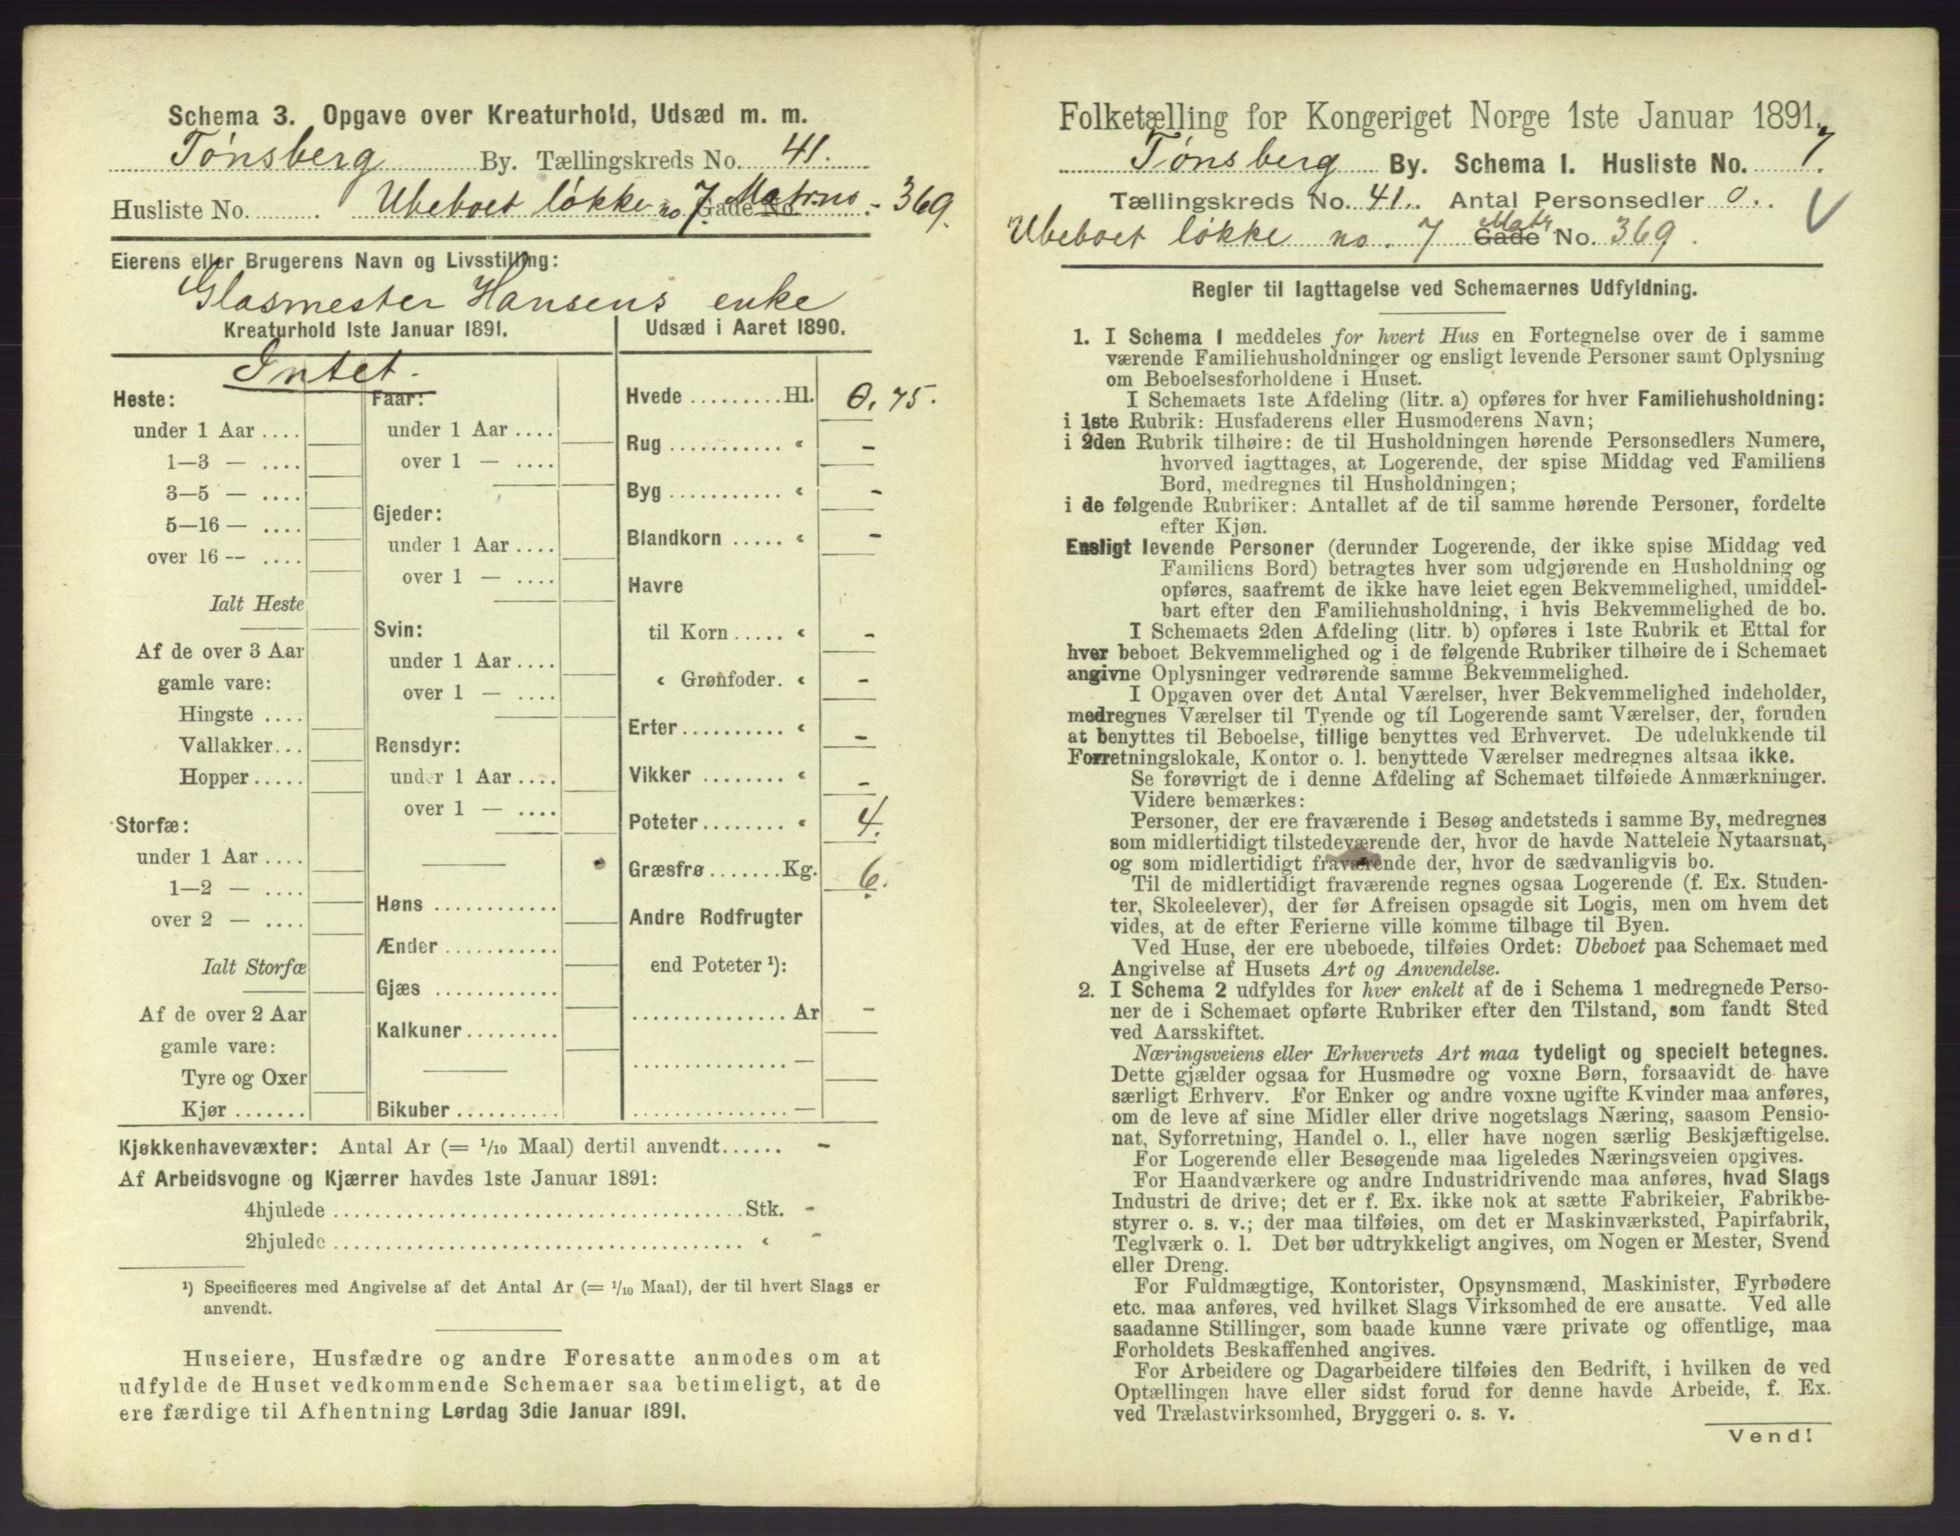 Schema 3. Opgave over Kreaturhold, Udsæd m. m.
Tønsberg By. Tællingskreds No. 41.
Husliste No. Ubeboet løkke no 7. Gade No. Matrno - 369.
Eierens eller Brugerens Navn og Livsstilling:
Glasmester Hansens enke
Kreaturhold 1ste Januar 1891.
Intet.
Heste:
under 1 Aar ....
1—3 — ....
3—5 — ....
5—16 — ....
over 16 — ....
Ialt Heste
Af de over 3 Aar
gamle vare:
Hingste ....
Vallakker...
Hopper .....
Storfæ:
under 1 Aar ....
1—2 — ....
over 2 — ....
Ialt Storfæ
Af de over 2 Aar
gamle vare:
Tyre og Oxer
Kjør .......
Faar:
under 1 Aar ....
over 1 — ....
Gjeder:
under 1 Aar ....
over 1 — ....
Svin:
under 1 Aar ....
over 1 — ....
Rensdyr:
under 1 Aar ....
over 1 — ....
Høns ............
Ænder ...........
Gjæs ............
Kalkuner.........
Bikuber..........
Udsæd i Aaret 1890.
Hvede .........Hl. 0,75.
Rug ........... « -
Byg ........... « -
Blandkorn ..... « -
Havre
til Korn ..... « -
« Grønfoder. « -
Erter.......... « -
Vikker ........ « -
Poteter........ « 4.
Græsfrø .......Kg. 6.
Andre Rodfrugter
end Poteter ¹):
............... Ar -
............... —
............... —
Kjøkkenhavevæxter: Antal Ar (= 1/10 Maal) dertil anvendt...... -
Af Arbeidsvogne og Kjærrer havdes 1ste Januar 1891:
4hjulede ......................................Stk. -
2hjulede ...................................... « -
¹) Specificeres med Angivelse af det Antal Ar (= 1/10 Maal), der til hvert Slags er
anvendt.
Huseiere, Husfædre og andre Foresatte anmodes om at
udfylde de Huset vedkommende Schemaer saa betimeligt, at de
ere færdige til Afhentning Lørdag 3die Januar 1891.
Folketælling for Kongeriget Norge 1ste Januar 1891.
Tønsberg By. Schema 1. Husliste No. 7.
Tællingskreds No. 41. Antal Personsedler 0.
Ubeboet løkke no. 7 Gade Matr No. 369.
Regler til Iagttagelse ved Schemaernes Udfyldning.
1. I Schema 1 meddeles for hvert Hus en Fortegnelse over de i samme
værende Familiehusholdninger og ensligt levende Personer samt Oplysning
om Beboelsesforholdene i Huset.
I Schemaets 1ste Afdeling (litr. a) opføres for hver Familiehusholdning:
i 1ste Rubrik: Husfaderens eller Husmoderens Navn;
i 2den Rubrik tilhøire: de til Husholdningen hørende Personsedlers Numere,
hvorved iagttages, at Logerende, der spise Middag ved Familiens
Bord, medregnes til Husholdningen;
i de følgende Rubriker: Antallet af de til samme hørende Personer, fordelte
efter Kjøn.
Ensligt levende Personer (derunder Logerende, der ikke spise Middag ved
Familiens Bord) betragtes hver som udgjørende en Husholdning og
opføres, saafremt de ikke have leiet egen Bekvemmelighed, umiddel-
bart efter den Familiehusholdning, i hvis Bekvemmelighed de bo.
I Schemaets 2den Afdeling (litr. b) opføres i 1ste Rubrik et Ettal for
hver beboet Bekvemmelighed og i de følgende Rubriker tilhøire de i Schemaet
angivne Oplysninger vedrørende samme Bekvemmelighed.
I Opgaven over det Antal Værelser, hver Bekvemmelighed indeholder,
medregnes Værelser til Tyende og til Logerende samt Værelser, der, foruden
at benyttes til Beboelse, tillige benyttes ved Erhvervet. De udelukkende til
Forretningslokale, Kontor o. l. benyttede Værelser medregnes altsaa ikke.
Se forøvrigt de i denne Afdeling af Schemaet tilføiede Anmærkninger.
Videre bemærkes:
Personer, der ere fraværende i Besøg andetsteds i samme By, medregnes
som midlertidigt tilstedeværende der, hvor de havde Natteleie Nytaarsnat,
og som midlertidigt fraværende der, hvor de sædvanligvis bo.
Til de midlertidigt fraværende regnes ogsaa Logerende (f. Ex. Studen-
ter, Skoleelever), der før Afreisen opsagde sit Logis, men om hvem det
vides, at de efter Ferierne ville komme tilbage til Byen.
Ved Huse, der ere ubeboede, tilføies Ordet: Ubeboet paa Schemaet med
Angivelse af Husets Art og Anvendelse.
2. I Schema 2 udfyldes for hver enkelt af de i Schema 1 medregnede Perso-
ner de i Schemaet opførte Rubriker efter den Tilstand, som fandt Sted
ved Aarsskiftet.
Næringsveiens eller Erhvervets Art maa tydeligt og specielt betegnes.
Dette gjælder ogsaa for Husmødre og voxne Børn, forsaavidt de have
særligt Erhverv. For Enker og andre voxne ugifte Kvinder maa anføres,
om de leve af sine Midler eller drive nogetslags Næring, saasom Pensio-
nat, Syforretning, Handel o. l., eller have nogen særlig Beskjæftigelse.
For Logerende eller Besøgende maa ligeledes Næringsveien opgives.
For Haandværkere og andre Industridrivende maa anføres, hvad Slags
Industri de drive; det er f. Ex. ikke nok at sætte Fabrikeier, Fabrikbe-
styrer o. s. v.; der maa tilføies, om det er Maskinværksted, Papirfabrik,
Teglværk o. l. Det bør udtrykkeligt angives, om Nogen er Mester, Svend
eller Dreng.
For Fuldmægtige, Kontorister, Opsynsmænd, Maskinister, Fyrbødere
etc. maa anføres, ved hvilket Slags Virksomhed de ere ansatte. Ved alle
saadanne Stillinger, som baade kunne være private og offentlige, maa
Forholdets Beskaffenhed angives.
For Arbeidere og Dagarbeidere tilføies den Bedrift, i hvilken de ved
Optællingen have eller sidst forud for denne havde Arbeide, f. Ex.
ved Trælastvirksomhed, Bryggeri o. s. v.
Vend!